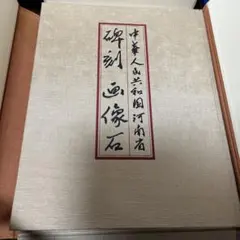 中華人民共和国河南省
碑刻画像石